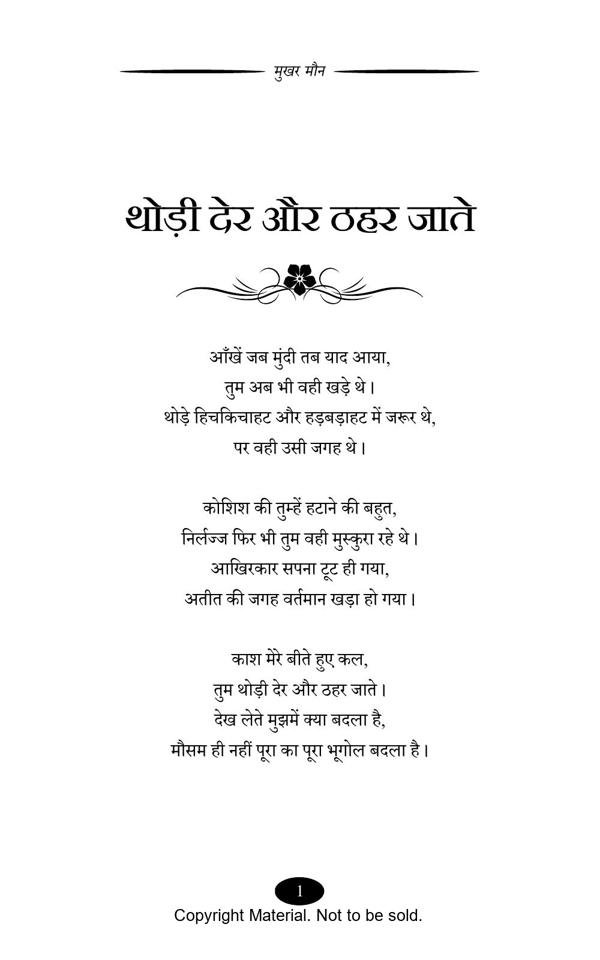 मुखर मौन
थोड़ी देर और ठहर जाते
आँखें जब मुंदी तब याद आया,
तुम अब भी वही खड़े थे।
थोड़े हिचकिचाहट और हड़बड़ाहट में जरूर थे,
पर वही उसी जगह थे।
कोशिश की तुम्हें हटाने की बहुत,
निर्लज्ज फिर भी तुम वही मुस्कुरा रहे थे।
आखिरकार सपना टूट ही गया,
अतीत की जगह वर्तमान खड़ा हो गया।
काश मेरे बीते हुए कल,
तुम थोड़ी देर और ठहर जाते।
देख लेते मुझमें क्या बदला है,
मौसम ही नहीं पूरा का पूरा भूगोल बदला है।
1
Copyright Material. Not to be sold.